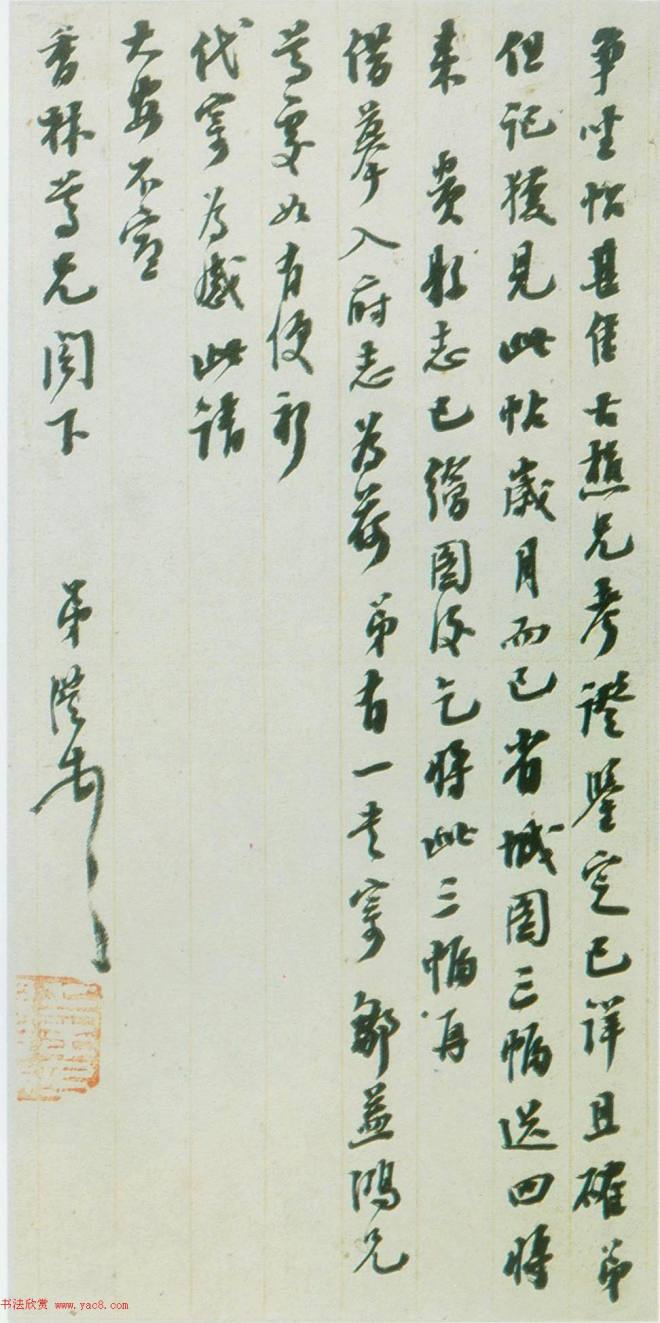 爭坐帖甚佳古樵兄考證鑒定已詳且確弟
但記獲見此帖歲月而已省城圖三幅送回將
來 貴縣志已繪圖後乞將此三幅再
借摹入府志為荷弟有一寄 鄒益鴻兄
尊處如有便祈
代寄為感此請
大安不宣
香林尊兄閣下 弟澧
书法欣赏 www.yac8.com